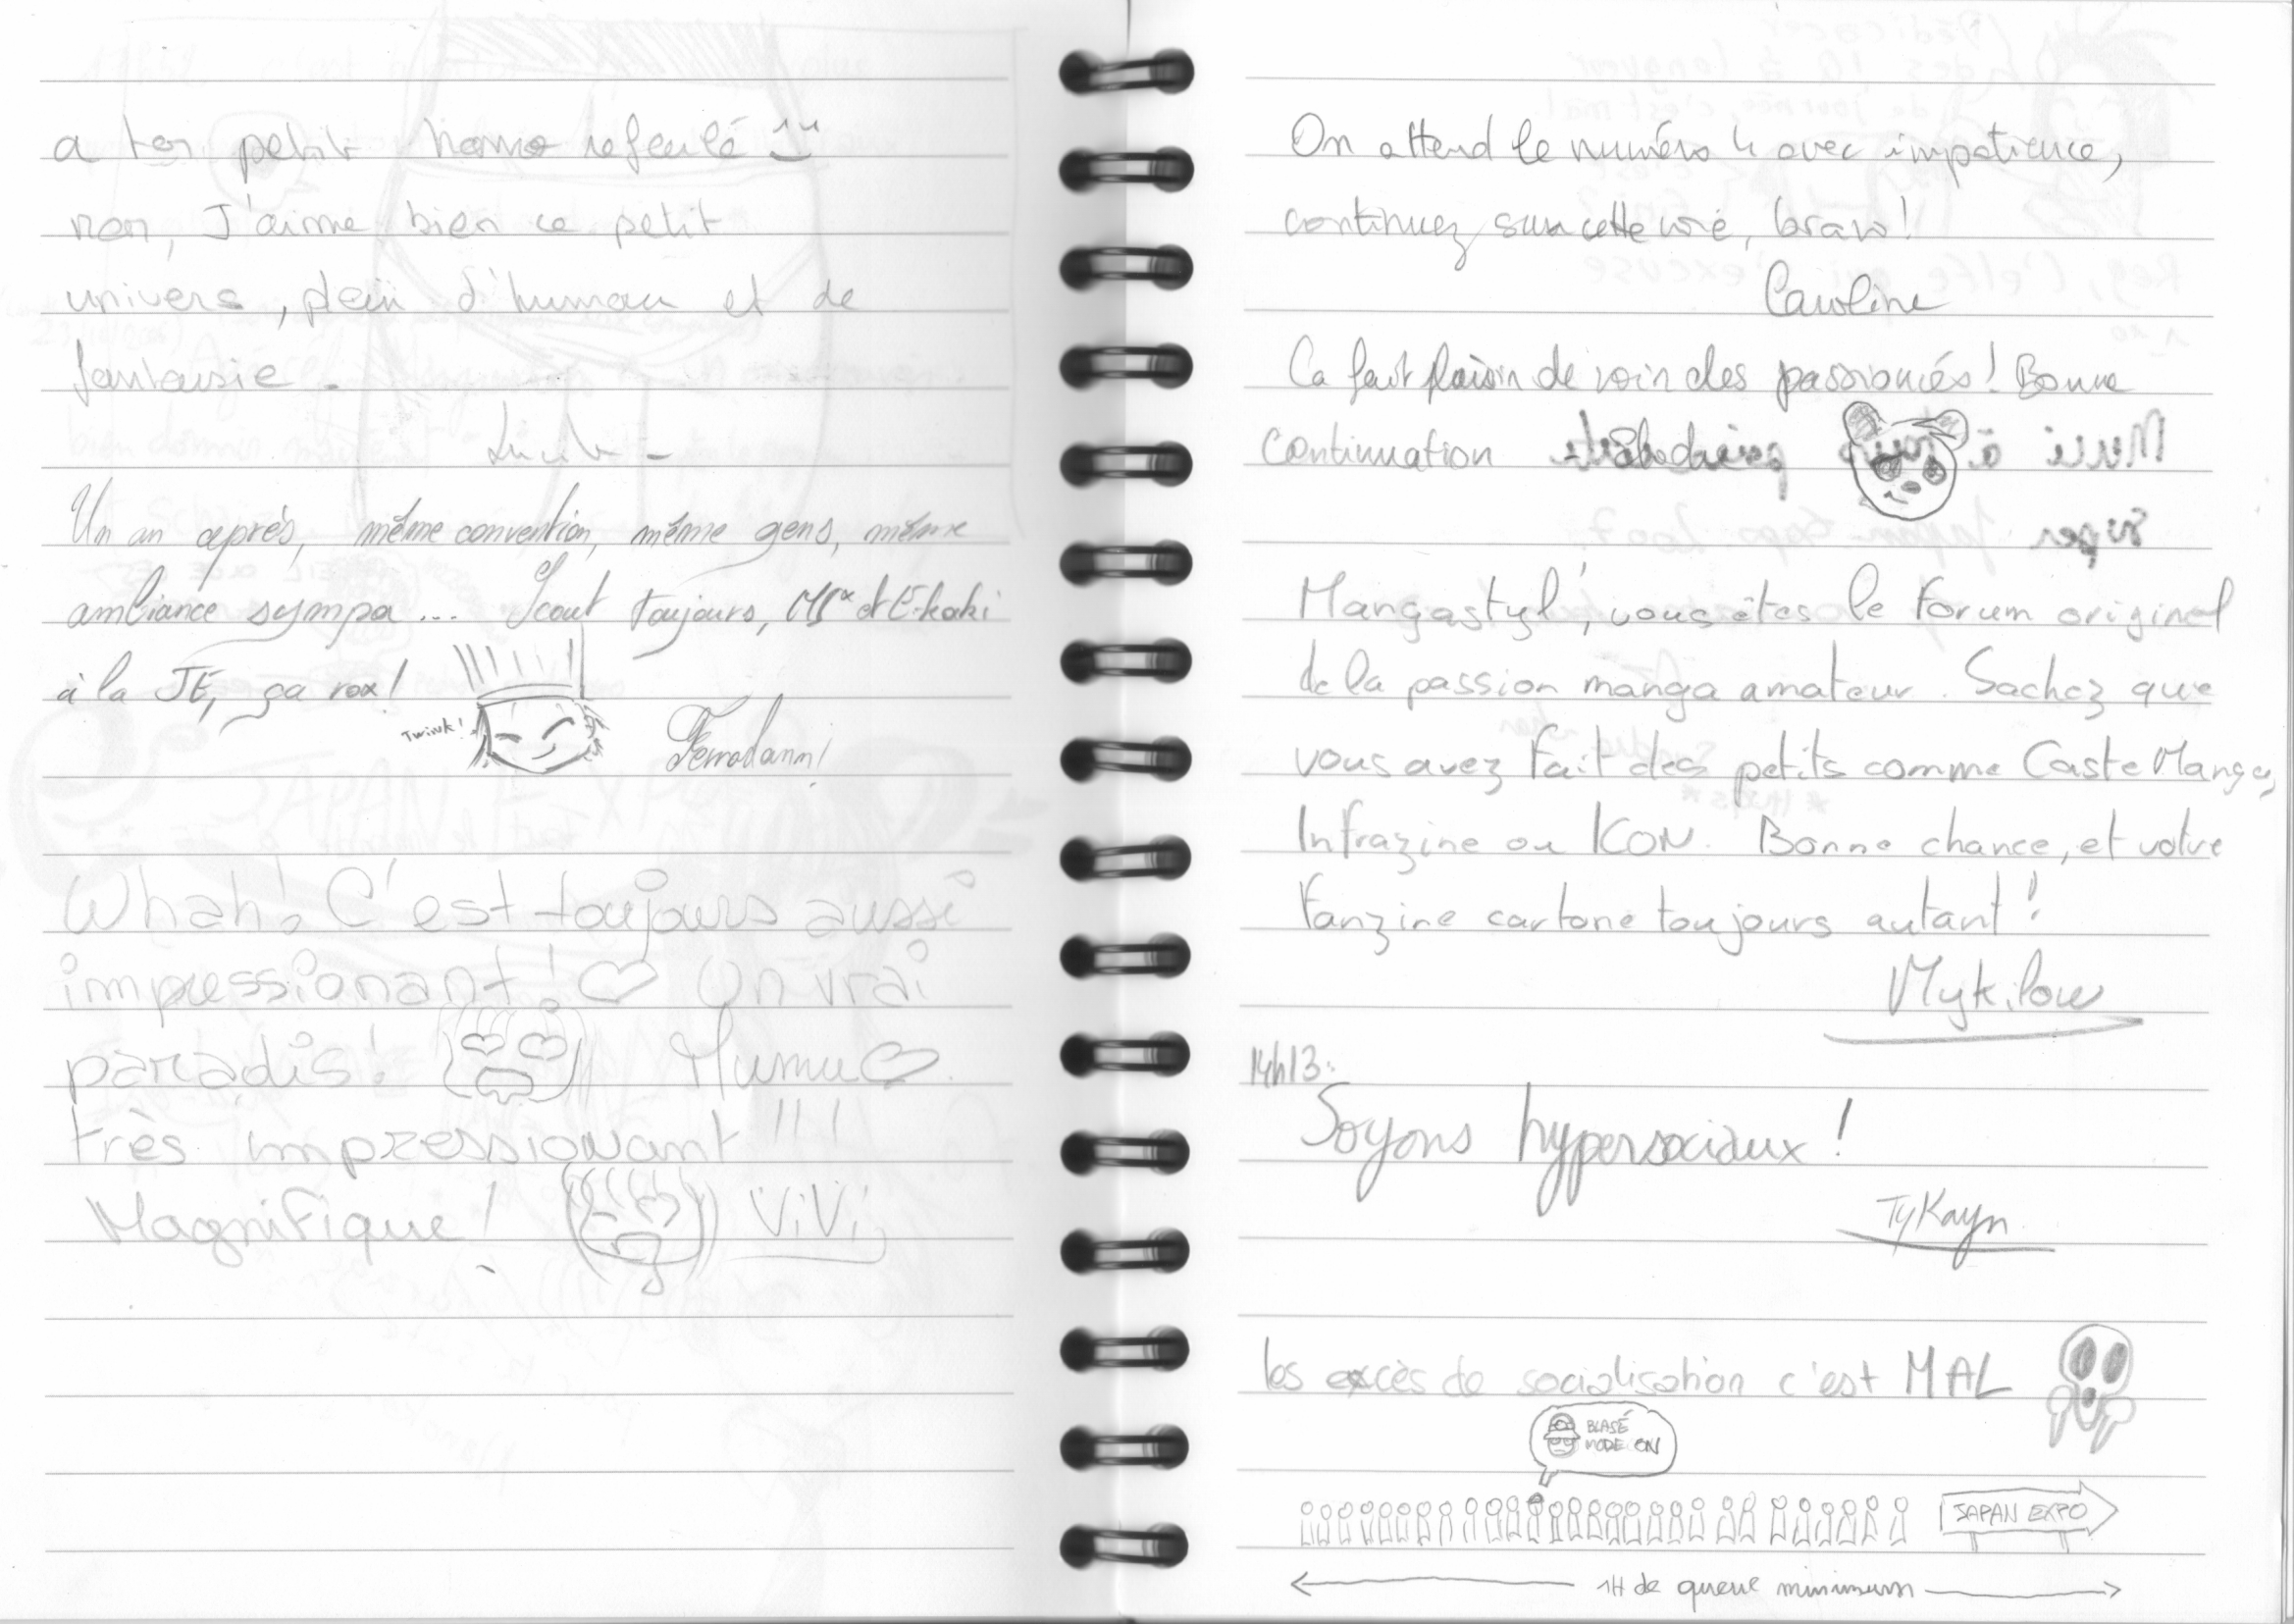 a toi petit homo refoulé
non, J'aime bien ce petit
univers, plein d'humour et de
fantaisie.
Un an après, même convention, même gens, même
ambiance sympa... Scout toujours, et E-kaki
à la JE, ça rox!
Twink!
Whah! C'est toujours aussi
impressionant! ♡ Un vrai
paradis! Mumu ♡
très impressionant !!!
Magnifique! ViVi
On attend le numéro 4 avec impatience,
continuez sur cette voie, bravo!
Caroline
Ca fait plaisir de voir des passionés! Bonne
continuation
Mangastyl', vous êtes le forum originel
de la passion manga amateur. Sachez que
vous avez fait des petits comme CasteManga,
Infrazine ou KON. Bonne chance, et votre
Fanzine cartone toujours autant!
Mykilow
14h13:
Soyons hypersociaux!
TyKayn
les excès de socialisation c'est MAL
BLASÉ
MODE ON
JAPAN EXPO
1H de queue minimum